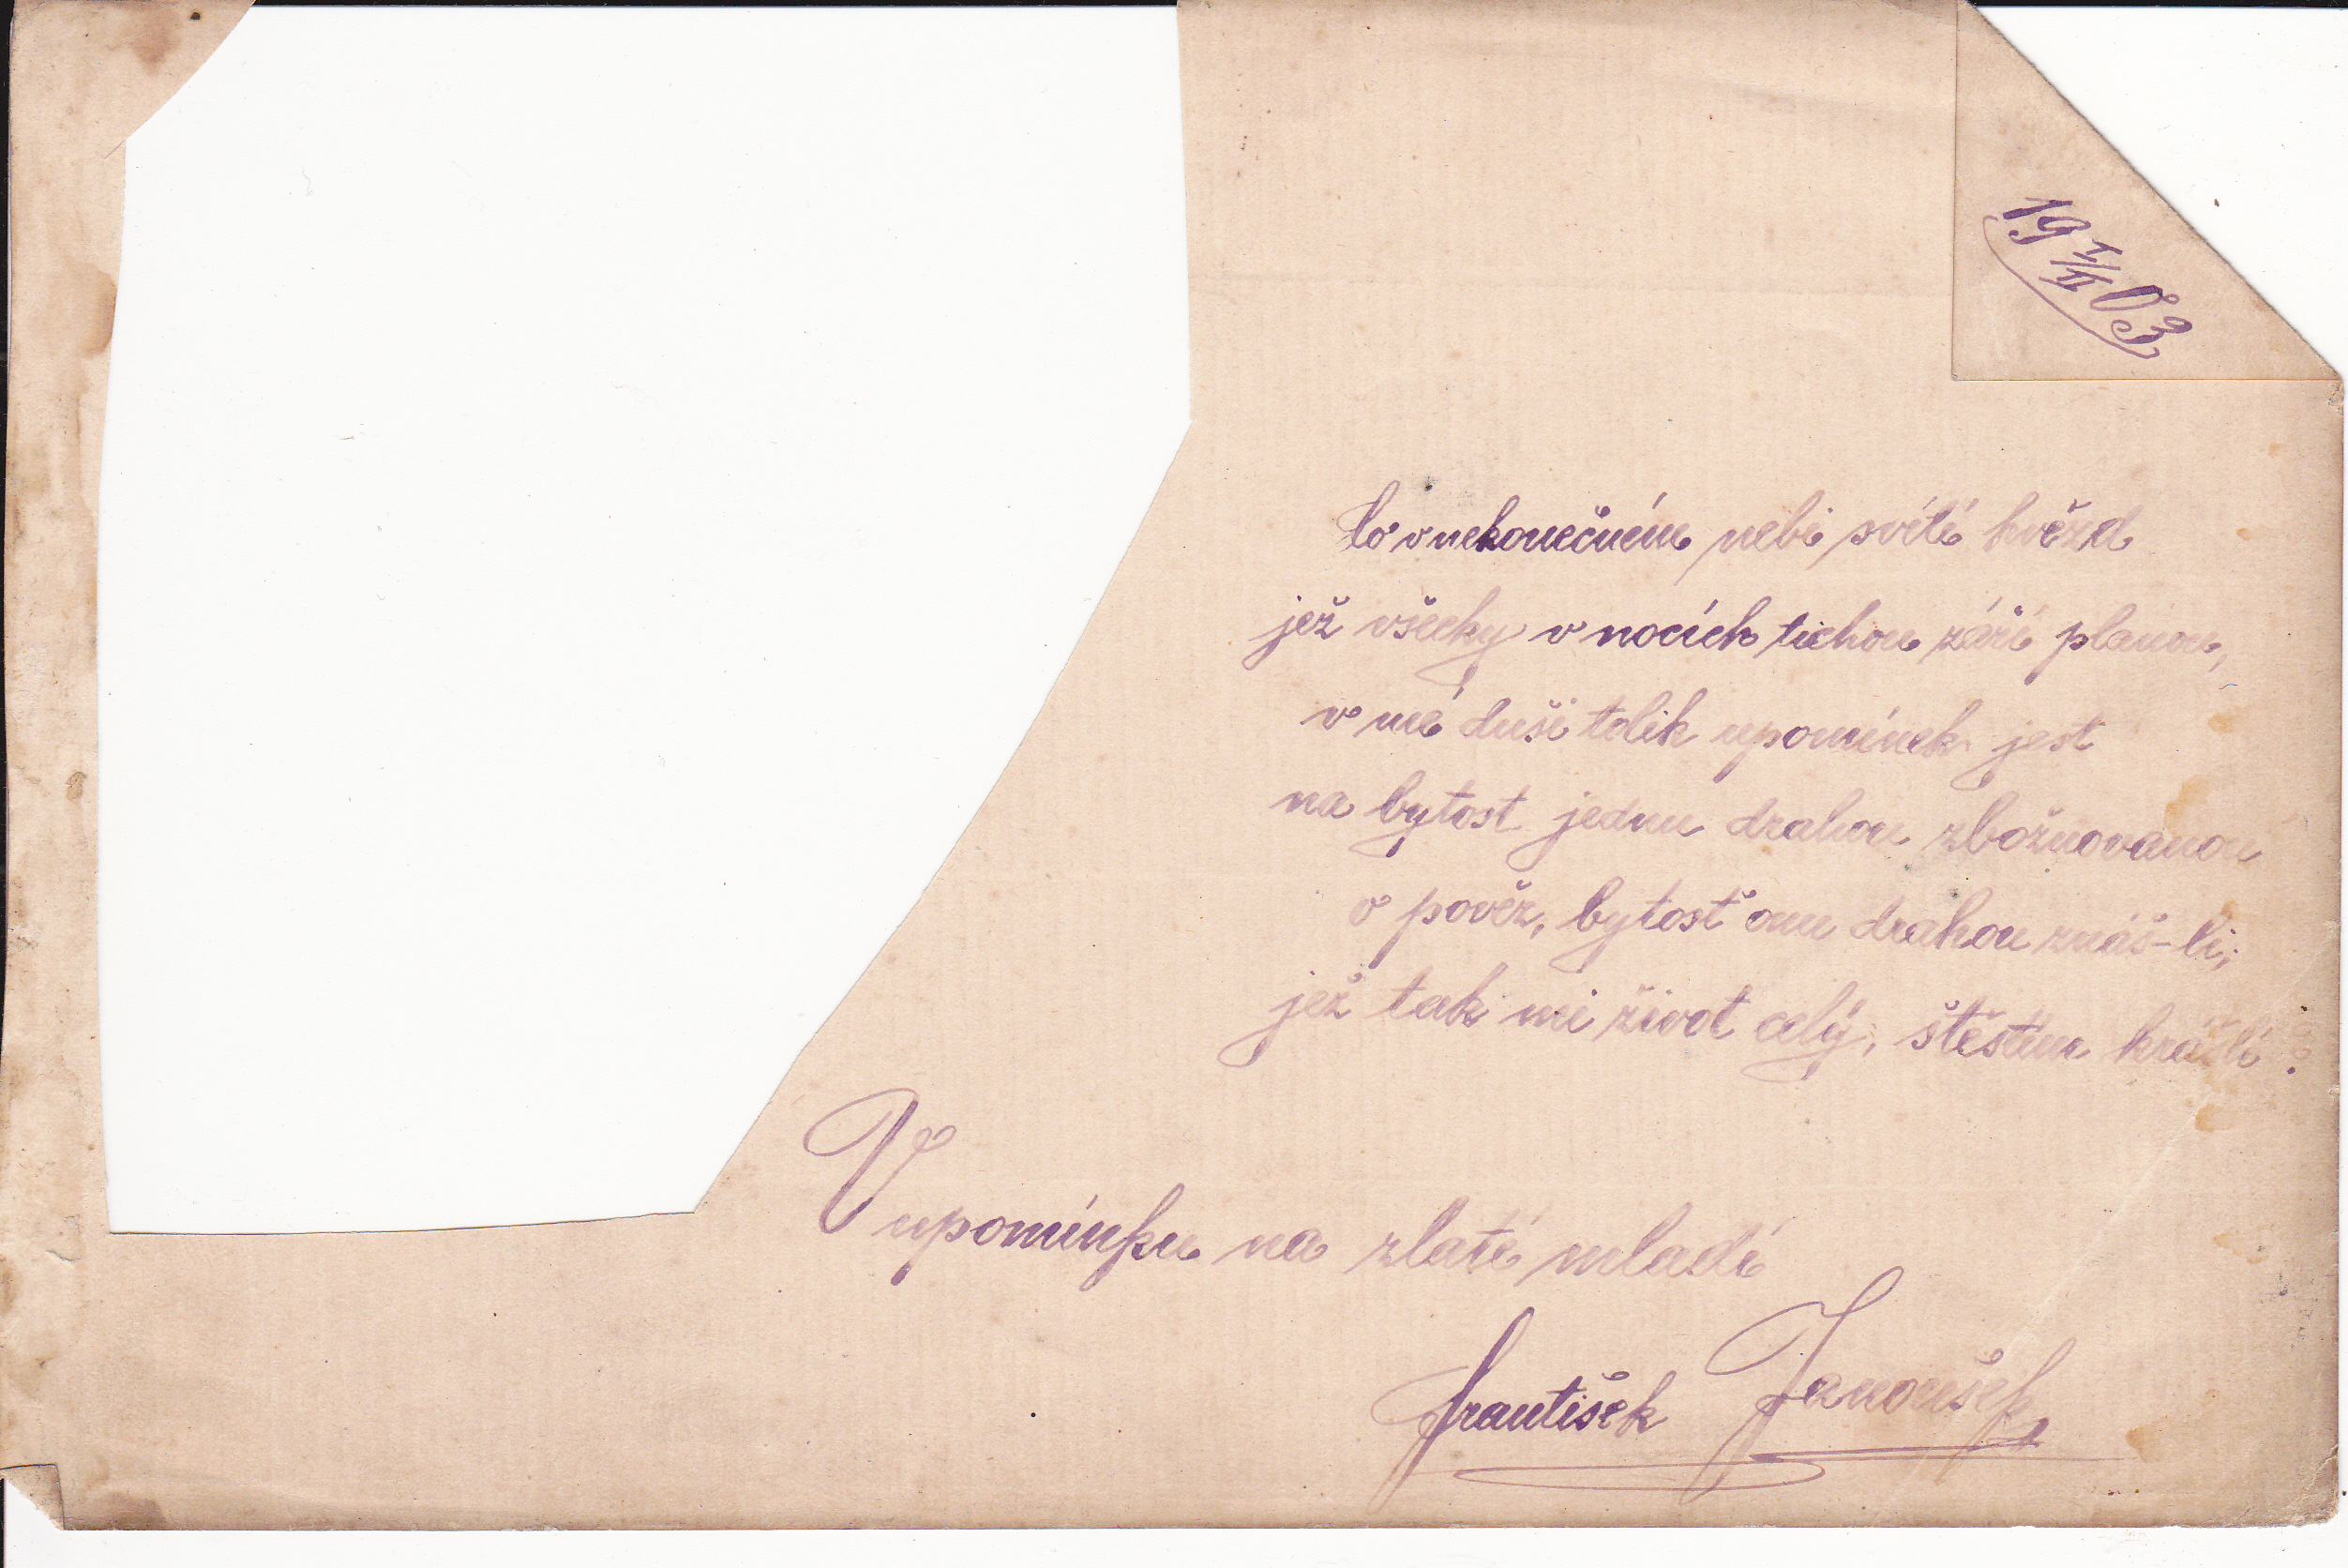 19 1/II 03
Co v nekonečném nebi svítí hvězd
jež všecky v nocích tichou září planou,
v mé duši tolik upomínek jest
na bytost jednu drahou zbožňovanou
o pověz, bytosť onu drahou znáš-li,
jež tak mi život celý, štěstím krášlí?
V upomínku na zlaté mladí
František Janoušek